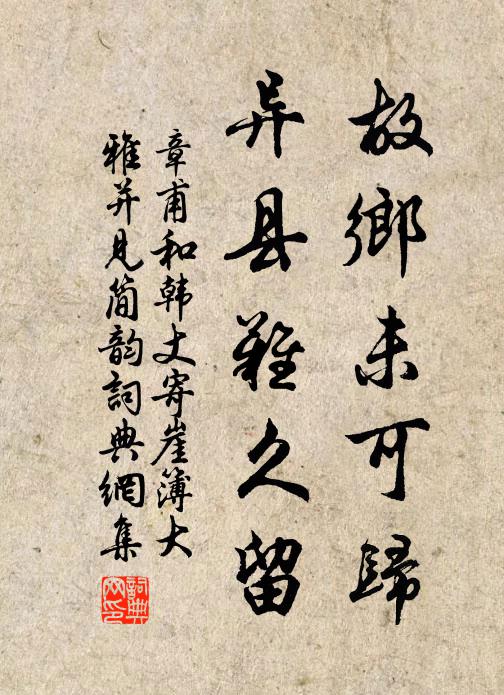 故鄉未可歸
异县難久留
章甫和韩丈寄崖簿大
雅并見简韵詞典網集
詞典网印